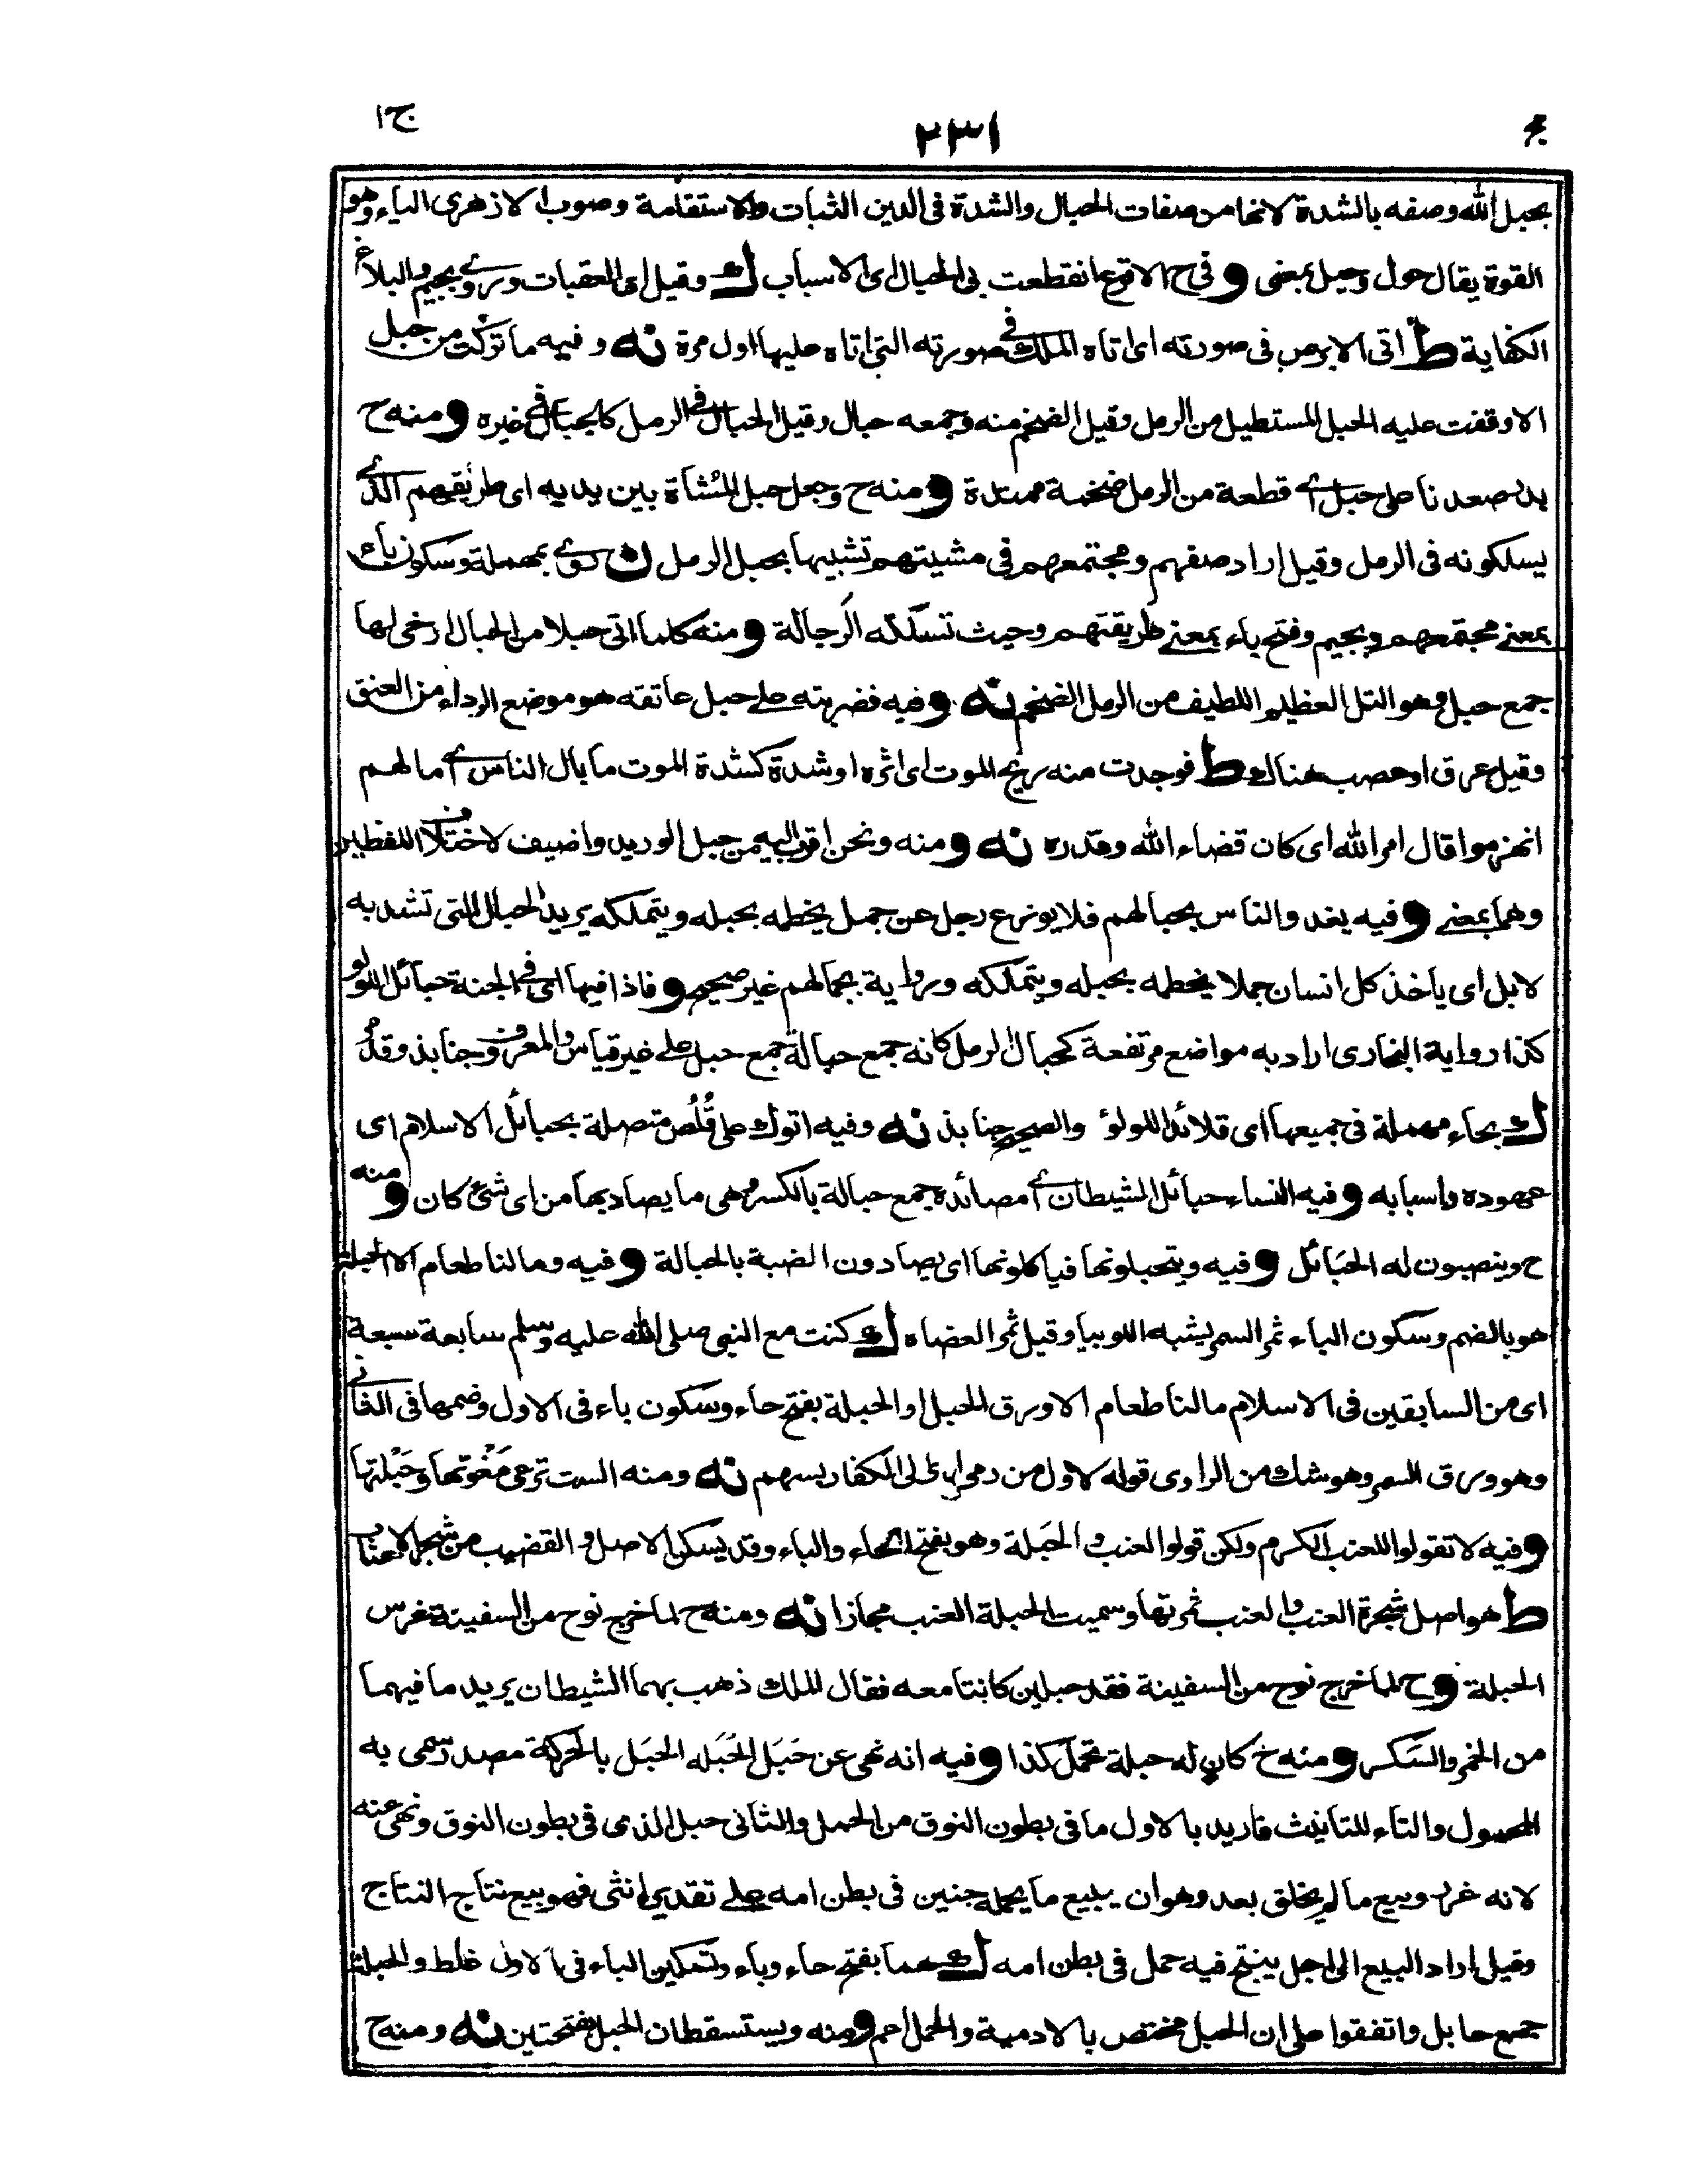 ج١
٢٣١
بحبل الله وصفه بالشدة لانها من صفات الحبال والشدة فى الدين الثبات والاستقامة وصوب الازهرى الياء وهو
القوة يقال حول وحيل بمعنى و فى ح الاقرع انقطعت بى الحبال اى الاسباب ك وقيل اى العقبات وروى بجيم والبلاغ
الكفاية ط اتى الابرص فى صورته اى اتاه الملك فى صورته التى اتاه عليها اول مرة نه و فيه ما تركت من حبل
الا وقفت عليه الحبل المستطيل من الرمل وقيل الضخم منه وجمعه حبال وقيل الحبال فى الرمل كالجبال فى غيره و منه ح
بدر صعدنا على حبل اى قطعة من الرمل ضخمة ممتدة و منه ح وجعل حبل المُشاة بين يديه اى طريقهم الذى
يسلكونه فى الرمل وقيل اراد صفهم ومجتمعهم فى مشيتهم تشبيها بحبل الرمل ن روى بمهملة وسكون باء
بمعنى مجتمعهم وبجيم وفتح باء بمعنى طريقتهم وحيث تسلكه الرجالة و منه كلما اتى حبلا من الحبال ارخى لها
جمع حبل وهو التل العظيم اللطيف من الرمل الضخم نه و فيه فضربته على حبل عاتقه هو موضع الرداء من العنق
وقيل عرق او عصب هناك ط فوجدت منه ريح الموت اى اثره او شدة كشدة الموت ما بال الناس اى ما لهم
انهزموا قال امر الله اى كان قضاء الله وقدره نه و منه ونحن اقرب اليه من حبل الوريد واضيف لاختلاف اللفظين
وهما بمعنى و فيه يغد والناس بحبالهم فلا يوزع رجل عن جمل يخطمه بحبله ويتملكه يريد الحبال التى تشد به
لابل اى ياخذ كل انسان جملا يخطمه بحبله ويتملكه ورواية بجمالهم غير صحيح و فاذا فيها اى فى الجنة حبائل اللؤلؤ
كذا رواية البخارى اراد به مواضع مرتفعة كحبال الرمل كانه جمع حبالة جمع حبل على غير قياس والمعروف جنابذ وقد مر
ك بحاء مهملة فى جميعها اى قلائد اللولؤ والصحيح جنابذ نه و فيه اتوك على قُلُص متصلة بحبائل الاسلام اى
عهوده واسبابه و فيه النساء حبائل الشيطان اى مصائده جمع حبالة بالكسر وهى ما يصاد بها من اى شئ كان و منه
ح وينصبون له الحبَائل و فيه ويتحبلونها فياكلونها اى يصادون الضبة بالحبالة و فيه وما لنا طعام الا الحبلة
هو بالضم وسكون الباء ثمر السمر يشبه اللوبيا وقيل ثمر العضاه ك كنت مع النبى صلى الله عليه وسلم سابعة سبعة
اى من السابقين فى الاسلام ما لنا طعام الا ورق الحبل او الحبلة بفتح حاء وسكون باء فى الاول وضمها فى الثانى
وهو ورق السمر وهو شك من الراوى قوله لاول من رمى الى الكفار بسهم نه و منه الست ترعى مَعْوَتها وحَبْلتها
و فيه لا تقولوا للعنب الكرم ولكن قولوا العنب و الحَبلة وهو بفتح الحاء والباء وقد يسكن الاصل و القضيب من شجر الاعناب
ط هو اصل شجرة العنب والعنب ثمرتها وسميت الحبلة العنب مجازا نه و منه ح لما خرج نوح من السفينة غرس
الحبلة و ح لما خرج نوح من السفينة فقد حبلين كانتا معه فقال للملك ذهب بهما الشيطان يريد ما فيهما
من الخمر والسَكر و منه خ كان له حبلة تحمل كذا و فيه انه نهى عن حَبَل الحَبَله الحبَل بالحركة مصدر سمى به
المحمول والتاء للتانيث فاريد بالاول ما فى بطون النوق من الحمل والثانى حبل الذى فى بطون النوق ونهى عنه
لانه غرر وبيع ما لم يخلق بعد وهو ان يبيع ما يحمله جنين فى بطن امه على تقدير انثى فهو بيع نتاج النتاج
وقيل اراد البيع الى اجل ينتج فيه حمل فى بطن امه ك هما بفتح حاء وباء وتسكين الباء فى الاول غلط والحبلة
جمع حابل واتفقوا على ان الحبل مختص بالادمية والحمل اعم و منه ويستسقطان الحبل بفتحتين نه و منه ح